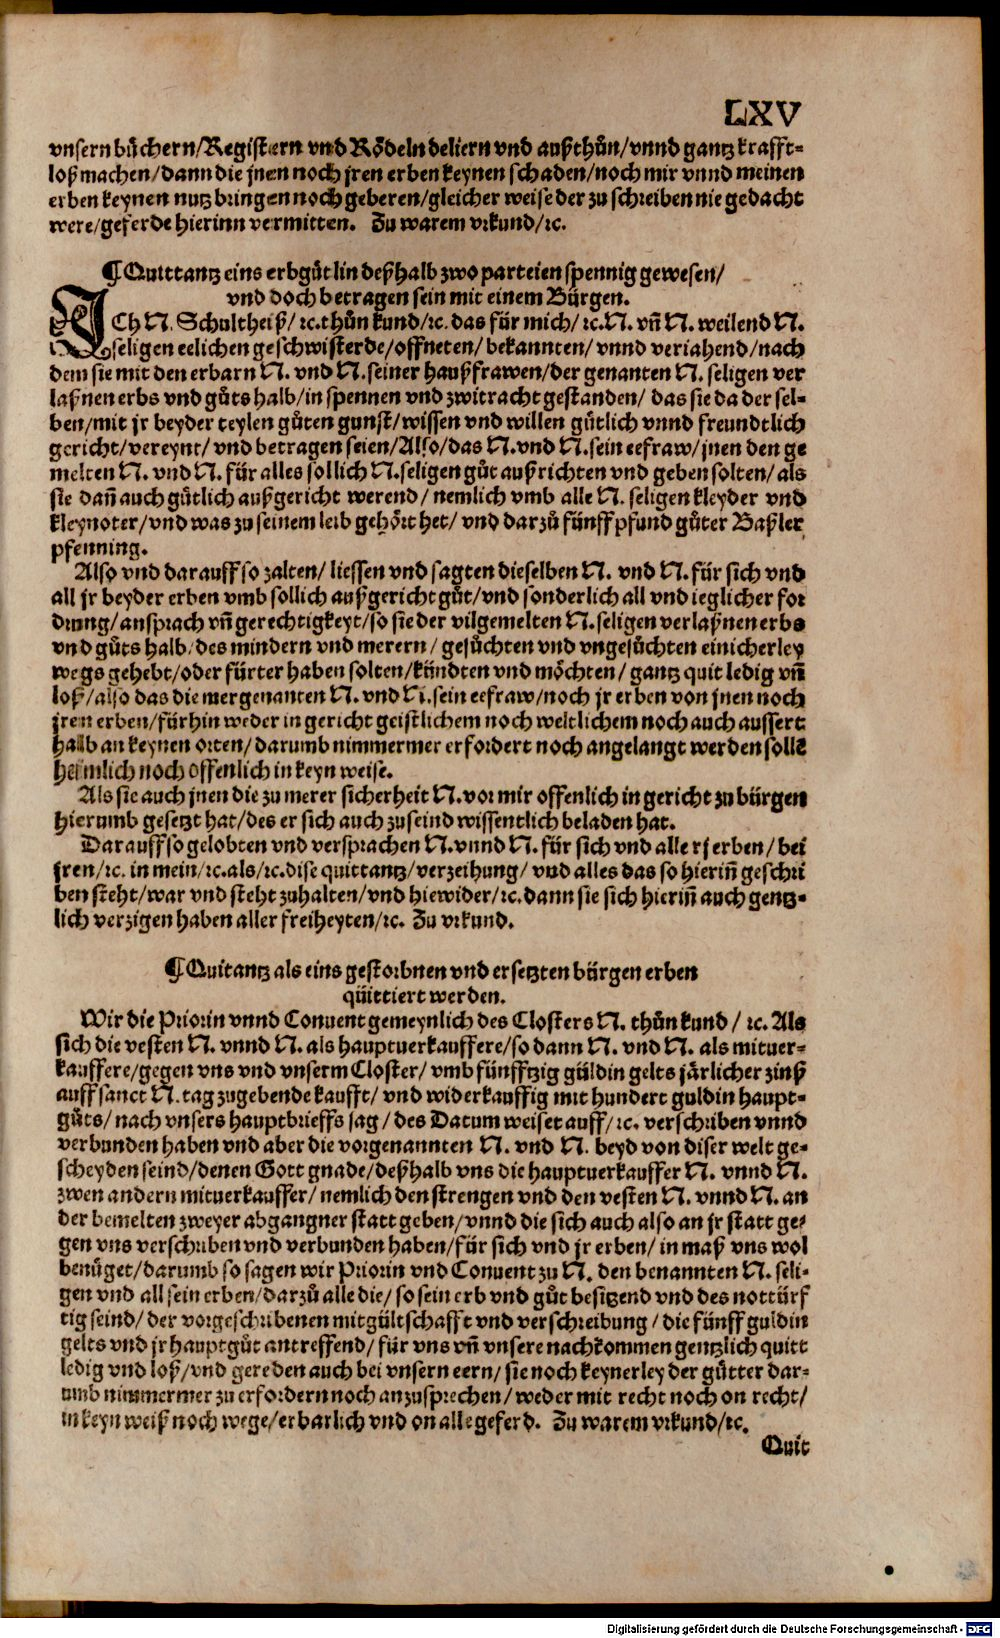 LXV
vnsern bůchern/Registern vnd Rödeln deliern vnd außthůn/vnnd gantz krafft-
loß machen/dann die jnen noch jren erben keynen schaden/noch mir vnnd meinen
erben keynen nutz bringen noch geberen/gleicher weise der zu schreiben nie gedacht
were/geferde hierinn vermitten. Zu warem vrkund/ꝛc.
¶Quittantz eins erbgůtlin deßhalb zwo parteien spennig gewesen/
vnd doch betragen sein mit einem Bürgen.
ICh N. Schultheiß/ ꝛc.thůn kund/ꝛc. das für mich/ ꝛc.N. vñ N. weilend N.
seligen eelichen geschwisterde/offneten/ bekannten/ vnnd veriahend/nach
dem sie mit den erbarn N. vnd N.seiner haußfrawen/der genanten N. seligen ver
laßnen erbs vnd gůts halb/in spennen vnd zwitracht gestanden/ das sie da der sel-
ben/mit jr beyder teylen gůten gunst/wissen vnd willen gütlich vnnd freundtlich
gericht/vereynt/ vnd betragen seien/Also/das N.vnd N.sein eefraw/jnen den ge
melten N. vnd N. für alles sollich N.seligen gůt außrichten vnd geben solten/ als
sie dañ auch gůtlich außgericht werend/ nemlich vmb alle N. seligen kleyder vnd
kleynoter/vnd was zu seinem leib gehört het/ vnd darzů fünff pfund gůter Baßler
pfenning.
Also vnd darauff so zalten/ liessen vnd sagten dieselben N. vnd N.für sich vnd
all jr beyder erben vmb sollich außgericht gůt/vnd sonderlich all vnd ieglicher for
drung/ansprach vñ gerechtigkeyt/so sie der vilgemelten N.seligen verlaßnen erbs
vnd gůts halb/des mindern vnd merern/ gesůchten vnd vngesůchten einicherley
wegs gehebt/oder fürter haben solten/kündten vnd möchten/ gantz quit ledig vñ
loß/also das die mergenanten N. vnd N.sein eefraw/noch jr erben von jnen noch
jren erben/fürhin weder in gericht geistlichem noch weltlichem noch auch aussert
halb an keynen orten/darumb nimmermer erfordert noch angelangt werden sollẽ
heimlich noch offenlich in keyn weise.
Als sie auch jnen die zu merer sicherheit N.vor mir offenlich in gericht zu bürgen
hierumb gesetzt hat/des er sich auch zuseind wissentlich beladen hat.
Darauff so gelobten vnd versprachen N.vnnd N. für sich vnd alle rj erben/ bei
jren/ꝛc. in mein/ꝛc.als/ꝛc.dise quittantz/verzeihung/ vnd alles das so hieriñ geschri
ben steht/war vnd steht zuhalten/vnd hiewider/ꝛc.dann sie sich hieriñ auch gentz-
lich verzigen haben aller freiheyten/ꝛc. Zu vrkund.
¶Quitantz als eins gestorbnen vnd ersetzten bürgen erben
qüittiert werden.
Wir die Priorin vnnd Conuent gemeynlich des Closters N. thůn kund/ ꝛc. Als
sich die vesten N. vnnd N. als hauptuerkauffere/so dann N. vnd N. als mituer-
kauffere/gegen vns vnd vnserm Closter/ vmb fünfftzig güldin gelts järlicher zinß
auff sanct N.tag zugebende kaufft/vnd widerkauffig mit hundert guldin haupt-
gůts/nach vnsers hauptbrieffs sag/des Datum weiset auff/ꝛc. verschriben vnnd
verbunden haben vnd aber die vorgenannten N. vnd N. beyd von diser welt ge-
scheyden seind/denen Gott gnade/deßhalb vns die hauptuerkauffer N. vnnd N.
zwen andern mituerkauffer/nemlich den strengen vnd den vesten N. vnnd N. an
der bemelten zweyer abgangner statt geben/vnnd die sich auch also an jr statt ge-
gen vns verschriben vnd verbunden haben/für sich vnd jr erben/ in maß vns wol
benůget/darumb so sagen wir Priorin vnd Conuent zu N. den benannten N. seli-
gen vnd all sein erben/darzů alle die/ so sein erb vnd gůt besitzend vnd des notturf
tig seind/der vorgeschribenen mitgültschafft vnd verschreibung/die fünff guldin
gelts vnd jr hauptgůt antreffend/für vns vñ vnsere nachkommen gentzlich quitt
ledig vnd loß/vnd gereden auch bei vnsern eern/sie noch keynerley der gůtter dar-
umb nimmermer zu erfordern noch anzusprechen/weder mit recht noch on recht/
in keyn weiß noch wege/erbarlich vnd on alle geferd. Zu warem vrkund/ꝛc.
Quit
Digitalisierung gefördert durch die Deutsche Forschungsgemeinschaft - DFG